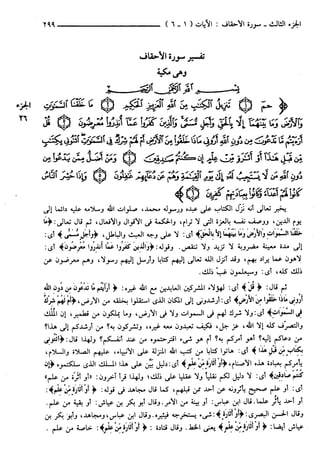 الجزء الثالث - سورة الأحقاف : الآيات ( ١ - ٦ ) ٢٩٩
تفسير سورة الأحقاف
وهي مكية
بسم الله الرحمن الرحيم
حم ۝ تنزيل الكتب من الله العزيز الحكيم ۝ ما خلقنا السموت
والأرض وما بينهما إلا بالحق وأجل مسمى والذين كفروا عما أنذروا معرضون ۝ قل
أرءيتم ما تدعون من دون الله أروني ماذا خلقوا من الأرض أم لهم شرك في السموت ائتوني بكتب
من قبل هذا أو أثرة من علم إن كنتم صدقين ۝ ومن أضل ممن يدعوا من
دون الله من لا يستجيب له إلى يوم القيمة وهم عن دعائهم غفلون ۝ وإذا حشر الناس
كانوا لهم أعداء وكانوا بعبادتهم كفرين ۝
الجزء
٢٦
يخبر تعالى أنه نزل الكتاب على عبده ورسوله محمد، صلوات الله وسلامه عليه دائما إلى
يوم الدين، ووصف نفسه بالعزة التي لا ترام، والحكمة في الأقوال والأفعال، ثم قال تعالى: ﴿ما
خلقنا السموت والأرض وما بينهما إلا بالحق﴾ أي: لا على وجه العبث والباطل، ﴿وأجل مسمى﴾ أي:
إلى مدة معينة مضروبة لا تزيد ولا تنقص. وقوله: ﴿والذين كفروا عما أنذروا معرضون﴾ أي:
لاهون عما يراد بهم، وقد أنزل الله تعالى إليهم كتابا وأرسل إليهم رسولا، وهم معرضون عن
ذلك كله، أي: وسيعلمون غب ذلك.
ثم قال: ﴿قل﴾ أي: لهؤلاء المشركين العابدين مع الله غيره: ﴿أرءيتم ما تدعون من دون الله
أروني ماذا خلقوا من الأرض﴾ أي: أرشدوني إلى المكان الذي استقلوا بخلقه من الأرض، ﴿أم لهم شرك
في السموت﴾ أي: ولا شرك لهم في السموات ولا في الأرض، وما يملكون من قطمير، إن الملك
والتصرف كله إلا الله، عز جل، فكيف تعبدون معه غيره، وتشركون به؟ من أرشدكم إلى هذا؟
من دعاكم إليه؟ أهو أمركم به؟ أم هو شيء اقترحتموه من عند أنفسكم؟ ولهذا قال: ﴿ائتوني
بكتب من قبل هذا﴾ أي: هاتوا كتابا من كتب الله المنزلة على الأنبياء، عليهم الصلاة والسلام،
يأمركم بعبادة هذه الأصنام، ﴿أو أثرة من علم﴾ أي: دليل بين على هذا المسلك الذي سلكتموه ﴿إن
كنتم صدقين﴾ أي: لا دليل لكم نقليا ولا عقليا على ذلك؛ ولهذا قرأ آخرون: «أو أثرة من علم»
أي: أو علم صحيح يأثرونه عن أحد ممن قبلهم، كما قال مجاهد في قوله: ﴿أو أثرة من علم﴾:
أو أحد يأثر علما. قال ابن عباس: أو بينة من الأمر. وقال أبو بكر بن عياش: أو بقية من علم.
وقال الحسن البصرى: ﴿أو أثرة﴾: شيء يستخرجه فيثيره. وقال ابن عباس، ومجاهد، وأبو بكر بن
عياش أيضا: ﴿أو أثرة من علم﴾ يعني الخط. وقال قتادة: ﴿أو أثرة من علم﴾: خاصة من علم .